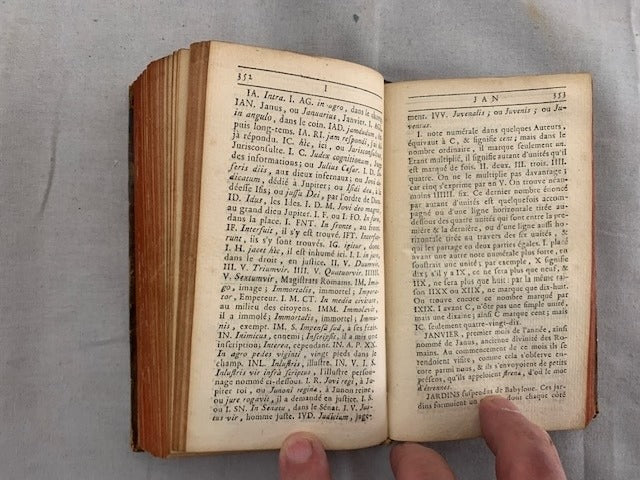 352 I
IA. Intra. I. AG. in agro, dans le champ.
IAN. Janus, ou Januarius, Janvier. I. AN.
in angulo, dans le coin. IAD. jamdudum,
puis long-tems. IA. RI. jam respondi, j'ai
jà répondu. IC. hîc, ici, ou Jurisconsultus,
Jurisconsulte. I. C. Judex cognitionum,
des informations; ou Julius Cæsar. I. D.
feris diis, aux dieux infernaux; ou Jovi de-
dicatum, dédié à Jupiter; ou Isidi dea, à la
déesse Isis; ou jussu Dei, par l'ordre de Dieu
ID. Idus, les Ides. I. D. M. Jovi deo magno,
au grand dieu Jupiter. I. F. ou I. FO. In foro,
dans la place. I. FNT. In fronte, au front.
IF. Interfuit, il s'y est trouvé. IFT. Interfue-
runt, ils s'y sont trouvés. IG. igitur, donc.
I. H. jacet hîc, il est inhumé ici. I. I. in jure,
dans le droit, en justice. II. V. Duumvir.
III. V. Triumvir. IIII. V. Quatuorvir. IIIIII.
V. Sextumvir, Magistrats Romains. IM. Ima-
go, image; Immortalis, immortel; Impera-
tor, Empereur. I. M. CT. In media civitate,
au milieu des citoyens. IMM. Immolavit,
il a immolé; Immortalis, immortel; Immu-
nis, exempt. IM. S. Impensâ suâ, a ses frais.
IN. Inimicus, ennemi; Inscripsit, il a mis une
inscription; Interea, cependant. IN. A. P. XX.
In agro pedes viginti, vingt pieds dans le
champ. INL. Inlustris, illustre. IN. V. I. S.
Inlustris vir infrà scriptus, l'illustre person-
nage nommé ci-dessous. I. R. Jovi regi, à Ju-
piter roi, ou Junoni reginæ, à Junon reine,
ou jure rogavit, il a demandé en justice. I. S.
ou I. SN. In Senatu, dans le Sénat. I. V. Jus-
tus vir, homme juste. IVD. Judicium, juge-
JAN 353
ment. IVV. Juvenalis; ou Juvenis; ou Ju-
ventus.
I. note numérale dans quelques Auteurs,
équivaut à C, & signifie cent; mais dans le
nombre ordinaire, il marque seulement un.
Etant multiplié, il signifie autant d'unités qu'il
est marqué de fois. II. deux. III. trois. IIII.
quatre. On ne le multiplie pas davantage;
car cinq s'exprime par en V. On trouve néan-
moins IIIIII. six. Ce dernier nombre énoncé
par autant d'unités est quelquefois accom-
pagné ou d'une ligne horizontale tirée au-
dessus des quatre unités qui sont entre la pre-
mière & la dernière, ou d'une ligne aussi ho-
rizontale tirée au travers des six unités, &
qui les partage en deux parties égales. I. placé
avant une autre note numérale plus forte, en
soustrait une unité; par exemple, X signifie
dix; s'il y a IX, ce ne sera plus que neuf, &
IIX, ne sera plus que huit: par la même rai-
son IIXX ou XIIX, ne marque que dix-huit.
On trouve encore ce nombre marqué par
IXIX. I avant C, n'ôte pas une simple unité,
mais une dizaine; ainsi C marque cent; mais
IC. seulement quatre-vingt-dix.
JANVIER, premier mois de l'année, ainsi
nommé de Janus, ancienne divinité des Ro-
mains. Au commencement de ce mois ils se
rendoient visite, comme cela s'observe en-
core parmi nous, & ils s'envoyoient de petits
présens, qu'ils appeloient strena, d'où le mot
d'étrennes.
JARDINS suspendus de Babylone. Ces jar-
dins formoient un dont chaque côté